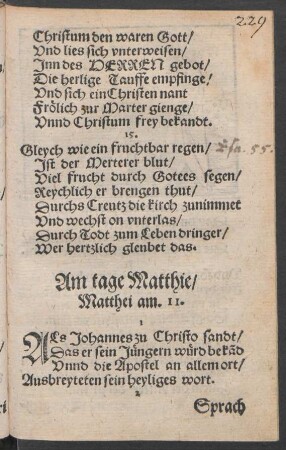 229
Christum den waren Gott/
Vnd lies sich vnterweisen/
Jnn des HERREN gebot/
Die herlige Tauffe empfinge/
Vnd sich ein Christen nant
Frölich zur Marter gienge/
Vnnd Christum frey bekandt.
15.
Gleych wie ein fruchtbar regen/ Esa. 55.
Jst der Merterer blut/
Viel frucht durch Gotees segen/
Reychlich er brengen thut/
Durchs Creutz die kirch zunimmet
Vnd wechst on vnterlas/
Durch Todt zum Leben dringer/
Wer hertzlich glenbet das.
Am tage Matthie/
Matthei am. 11.
1
ALs Johannes zu Christo sandt/
Das er sein Jüngern würd bekād
Vnnd die Apostel an allem ort/
Ausbreyteten sein heyliges wort.
2
Sprach